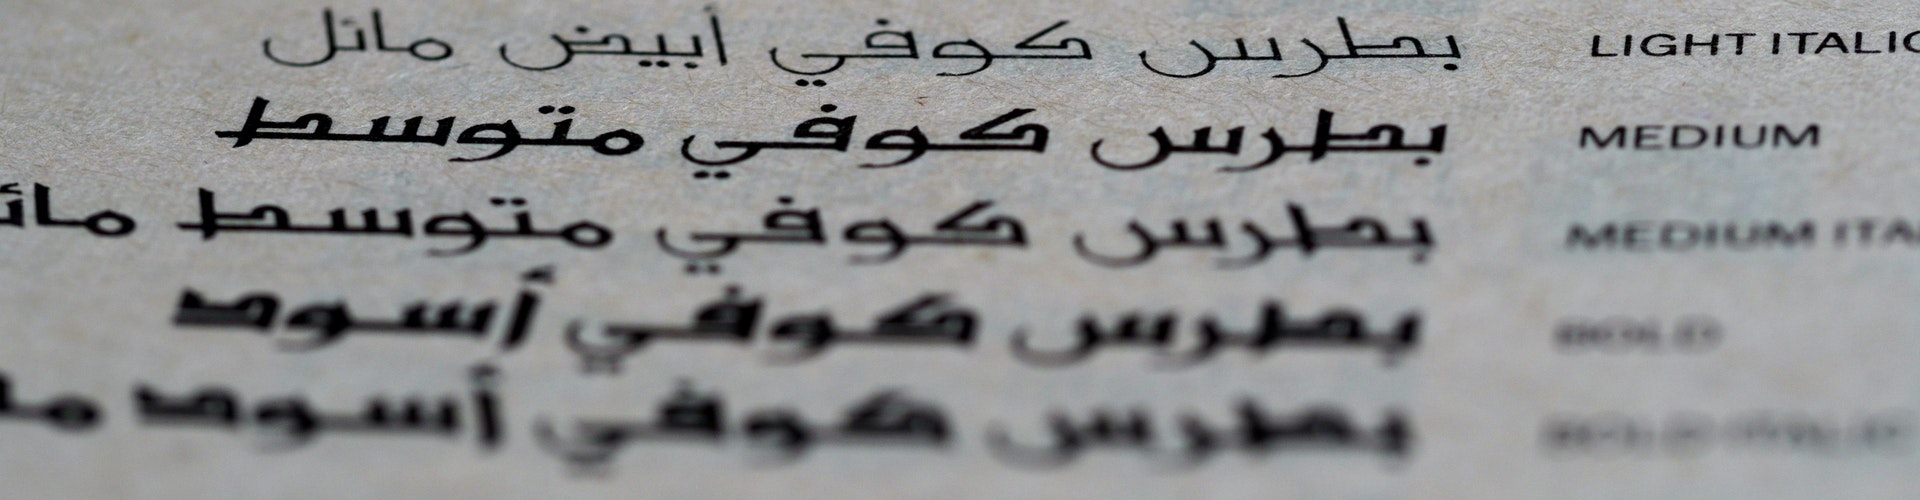 بطرس كوفي أبيض مائل LIGHT ITALIC
بطرس كوفي متوسط MEDIUM
بطرس كوفي متوسط MEDIUM
بطرس كوفي أسود BOLD
بطرس كوفي أسود BOLD ITALIC